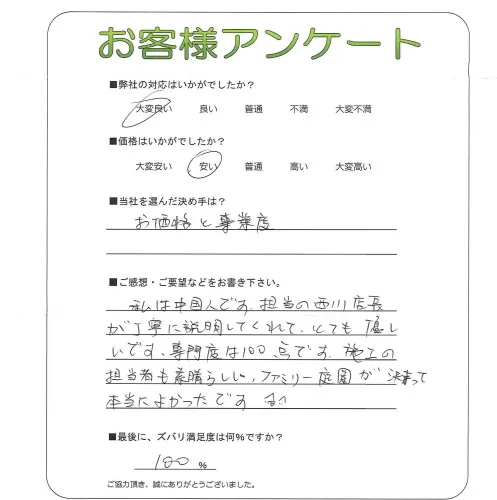 お客様アンケート
■弊社の対応はいかがでしたか？
大変良い 良い 普通 不満 大変不満
■価格はいかがでしたか？
大変安い 安い 普通 高い 大変高い
■当社を選んだ決め手は？
お価格と専業度
■ご感想・ご要望などをお書き下さい。
私は中国人です。担当の西川店長
が丁寧に説明してくれて、とても優し
いです。専門度は100点です。施工の
担当者も素晴らしい，ファミリー庭園が決まって
本当によかったです
■最後に、ズバリ満足度は何％ですか？
100 %
ご協力頂き、誠にありがとうございました。